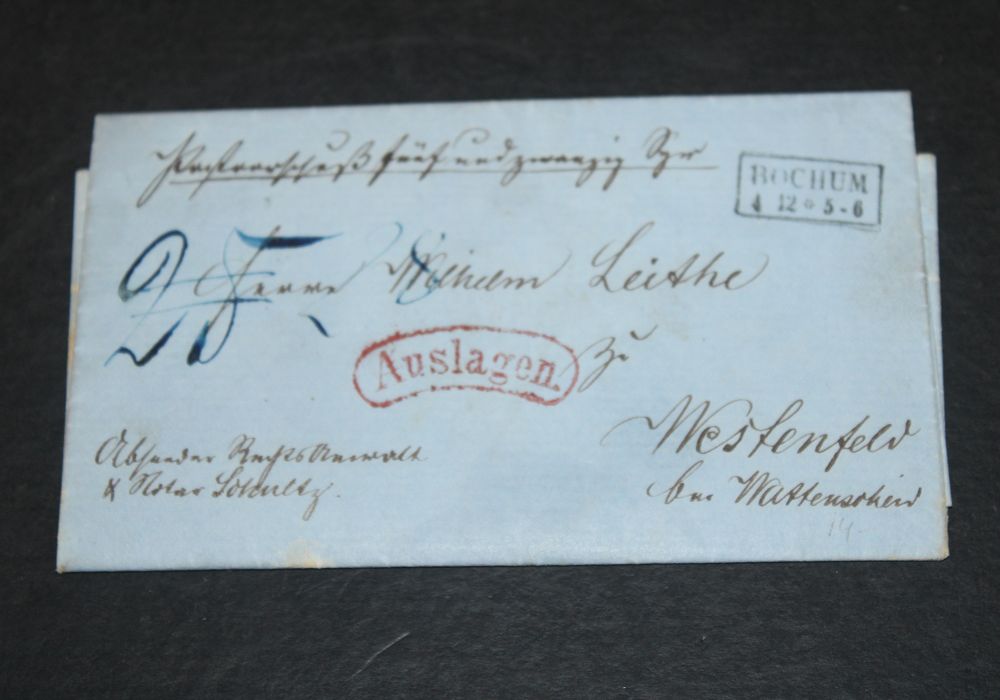 Postvorschuß fünf und zwanzig Sgr
BOCHUM
4 12 * 5-6
Herrn Wilhelm Leithe
25
Auslagen.
zu
Westenfeld
bei Wattenscheid
Absender Rechts Anwalt
& Notar Schultz.
14.